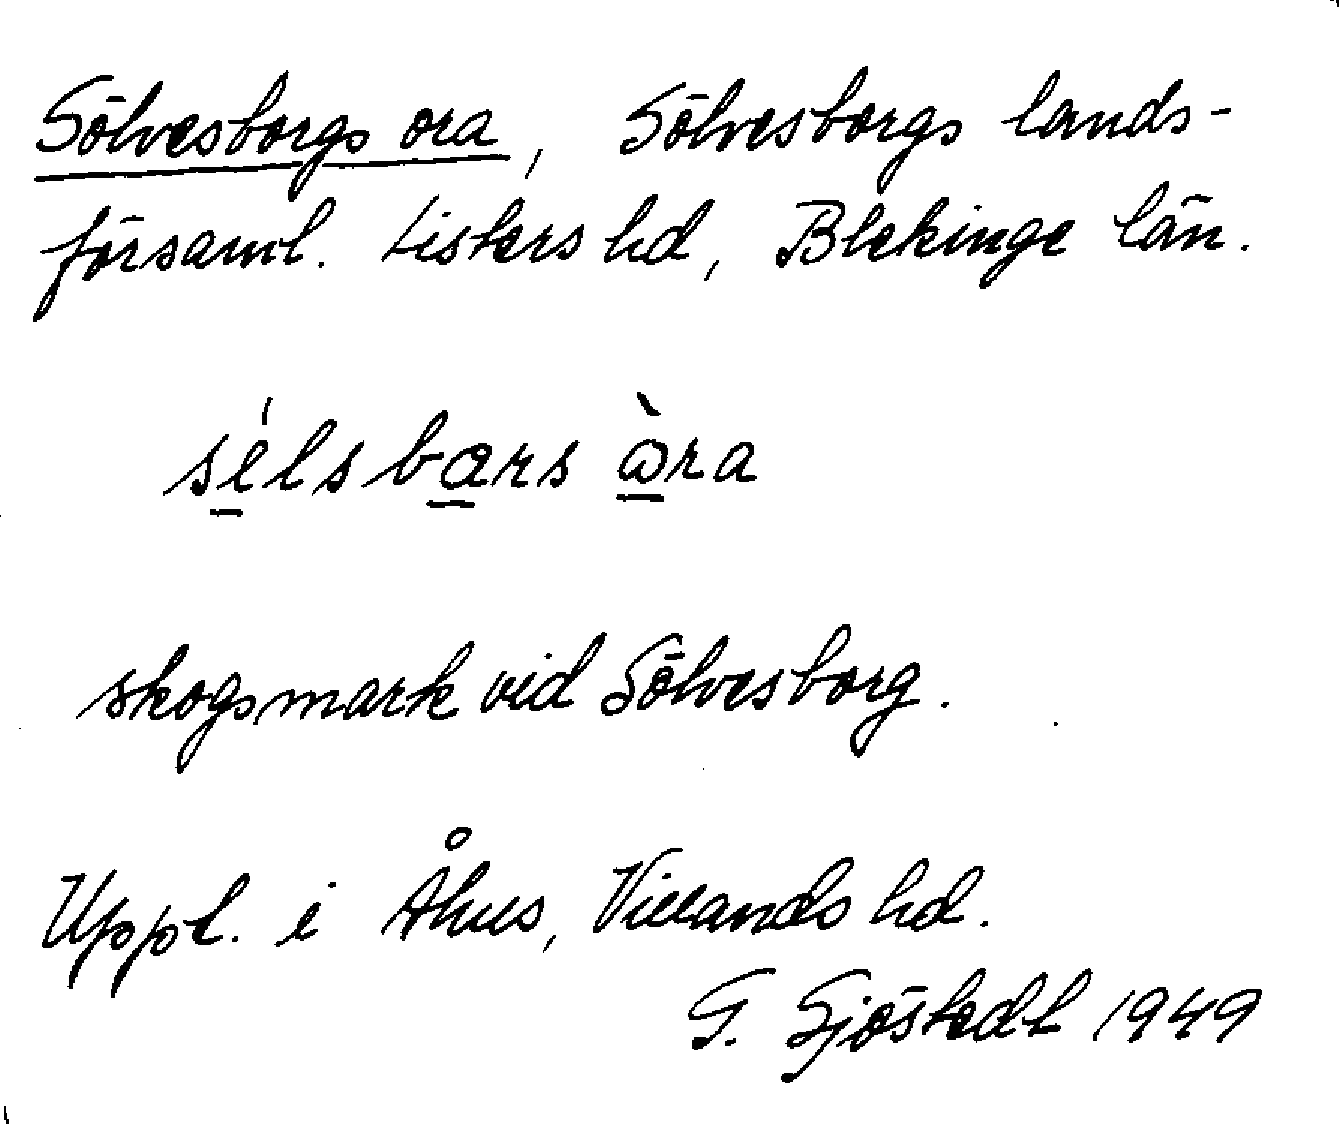 Sölvesborgs ora, Sölvesborgs lands-
församl. Listers hd, Blekinge län.
sélsbars òra
skogsmark vid Sölvesborg.
Uppt. i Åhus, Villands hd.
G. Sjöstedt 1949